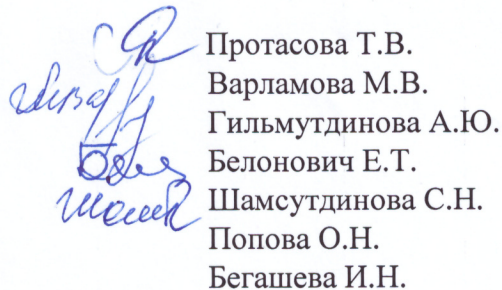 Протасова Т.В.
Варламова М.В.
Гильмутдинова А.Ю.
Белонович Е.Т.
Шамсутдинова С.Н.
Попова О.Н.
Бегашева И.Н.